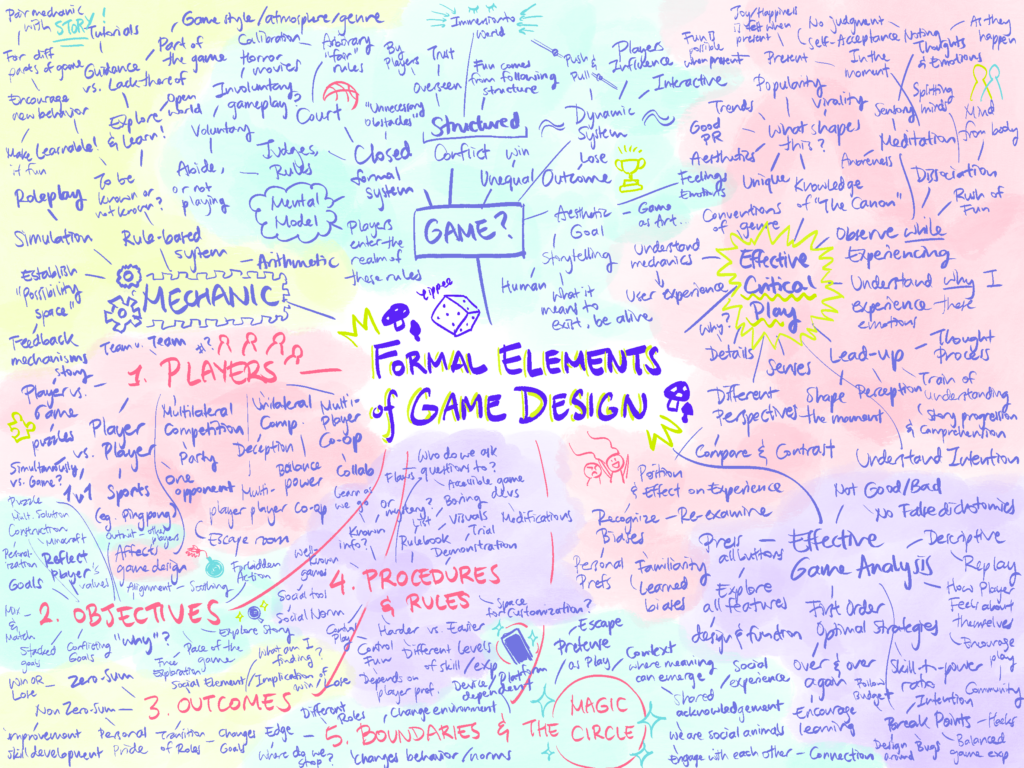 Pair mechanic
with STORY!
Tutorials
For diff
parts of game
Guidance
vs. Lack thereof
Part of
the game
Open
world
Encourage
new behavior
Explore
& Learn!
Make Learnable!
it fun
Roleplay
To be
known or
not known?
Simulation
Rule-based
system
Establish
"Possibility
space"
Arithmetic
MECHANIC
Feedback
mechanisms
Game style/atmosphere/genre
Calibration
Horror
movies
Arbitrary
"fair"
rules
Involuntary
gameplay?
Voluntary
Court
Abide,
or not
playing
Judges,
Rules
Mental
Model
By
Players
Trust
Overseen
"Unnecessary
obstacles"
Closed
formal
system
Players
enter the
realm of
these rules
Immersion to
World
Fun comes
from following
structure
Structured
Conflict
Win
Unequal Outcome
Lose
Push &
Pull
Players
Influence
Interactive
Dynamic
System
GAME?
Aesthetic
Goal
Game
as Art
Feelings
Emotions
Storytelling
Human
What it
means to
exist, be alive
Yippee
FORMAL ELEMENTS
of GAME DESIGN
Joy/Happiness
is felt when
present
Fun is
possible
when present
Present
No judgment
Self-Acceptance
Noting
Thoughts
& Emotions
As they
happen
In the
moment
Popularity
Virality
Trends
Good
PR
What shapes
this?
Aesthetics
Unique
Knowledge
of "The Canon"
Conventions
of genre
Splitting
minds
Mind
from body
Meditation
Awareness
Dissociation
Rush of
Fun
Understand
mechanics
User experience
Effective
Critical
Play
Observe while
Experiencing
Understand why I
experience these
emotions
Why?
Details
Senses
Lead-up
Thought
Process
Different
Perspectives
Shape Perception
the moment
Train of
understanding
Story progression
& Comprehension
Compare & Contrast
Understand Intention
Position
& Effect on Experience
Recognize - Re-examine
Biases
Personal
Prefs
Familiarity
Learned
biases
Not Good/Bad
No False dichotomies
Effective
Game Analysis
Descriptive
Replay
How Player
Feels about
themselves
Encourage
play
Community
Press
all buttons
Explore
all features
design & function
First Order
Optimal Strategies
Over & over
again
Skill-to-power
ratio
Encourage
learning
Intention
Break Points - Hacks
Design
around
Bugs
Balanced
game exp
1. PLAYERS
Team v. Team
#?
Player vs.
Game
story
puzzles
Player
vs.
Player
Simultaneously
vs. Game?
1v1
Sports
(eg. Pingpong)
Multilateral
Competition
Party
one
opponent
Unilateral
Comp.
Deception
Balance
power
Multi-
player
Multi-
Player
Co-op
Collab
player co-op
Escape room
Affects
game design
2. OBJECTIVES
Puzzle
Solution
Construction
Minecraft
Reflect
Player's
values
Goals
Alignment
Forbidden
Action
Mix
&
Match
Stacked
goals
Conflicting
Goals
"Why"?
Explore Story
Pace of the
game
Free
Exploration
Social Element/Implication of
What am I
finding?
Win or
Lose
Zero-Sum
3. OUTCOMES
Non Zero-Sum
improvement
skill development
Personal
Pride
Transition
of Roles
Changes
Goals
4. PROCEDURES
& RULES
Who do we ask
questions to?
Flaws?
Accessible game
devs
Learn as
we go
or
mystery?
Boring
Visuals
Modifications
Known
info?
Rulebook
Trial
Demonstration
Well-
known
games
Social tool
Social Norm
Space
for customization?
Harder vs. Easier
Control
Fun
Different Levels
of skill/exp
Depends on
player pref.
Device/Platform
dependent
5. BOUNDARIES & THE
MAGIC
CIRCLE
Different
Roles
Change environment
Edge
Where do we
stop?
Changes behavior/norms
Escape
Pretense
as Play
Context
where meaning
can emerge
Social
experience
Shared
acknowledgement
We are social animals
Engage with each other - Connection